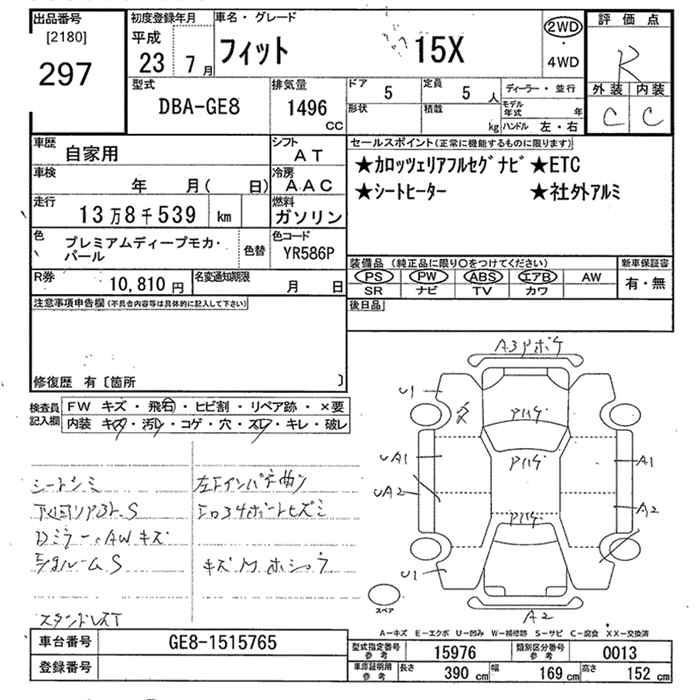 出品番号
[2180]
297
初度登録年月
平成
23 7月
車名・グレード
フィット 15X
2WD
・
4WD
評価点
R
外装 内装
C C
型式
DBA-GE8
排気量
1496
CC
ドア 5
定員 5 人
ディーラー・並行
形状
積載 kg
モデル年式 年
ハンドル 左・右
車歴 自家用
シフト AT
車検 年 月( 日)
冷房 AAC
走行 13万8千539 km
燃料 ガソリン
色 プレミアムディープモカ・パール
色替
色コード YR586P
R券 10,810円
名変通知期限 月 日
セールスポイント(正常に機能するものに限ります)
★カロッツェリアフルセグナビ★ETC
★シートヒーター ★社外アルミ
装備品(純正品に限り○をつけてください)
新車保証書
PS PW ABS エアB AW
SR ナビ TV カワ
有・無
後日品
注意事項申告欄(不具合内容等は具体的に記入して下さい)
修復歴 有〔箇所 〕
検査員記入欄
FW キズ・飛石・ヒビ割・リペア跡・×要
内装 キズ・汚レ・コゲ・穴・スレ・キレ・破レ
シートシミ
Dミラー、AWキズ
A3 Pボケ
U1
Pハゲ
Pハゲ
Pハゲ
UA1
UA2
A1
A2
U1
A2
スペア
A-キズ E-エクボ U-凹み W-補修跡 S-サビ C-腐食 XX-交換済
車台番号 GE8-1515765
登録番号
型式指定番号 参考 15976
類別区分番号 参考 0013
車庫証明用 参考 長さ 390 cm 幅 169 cm 高さ 152 cm